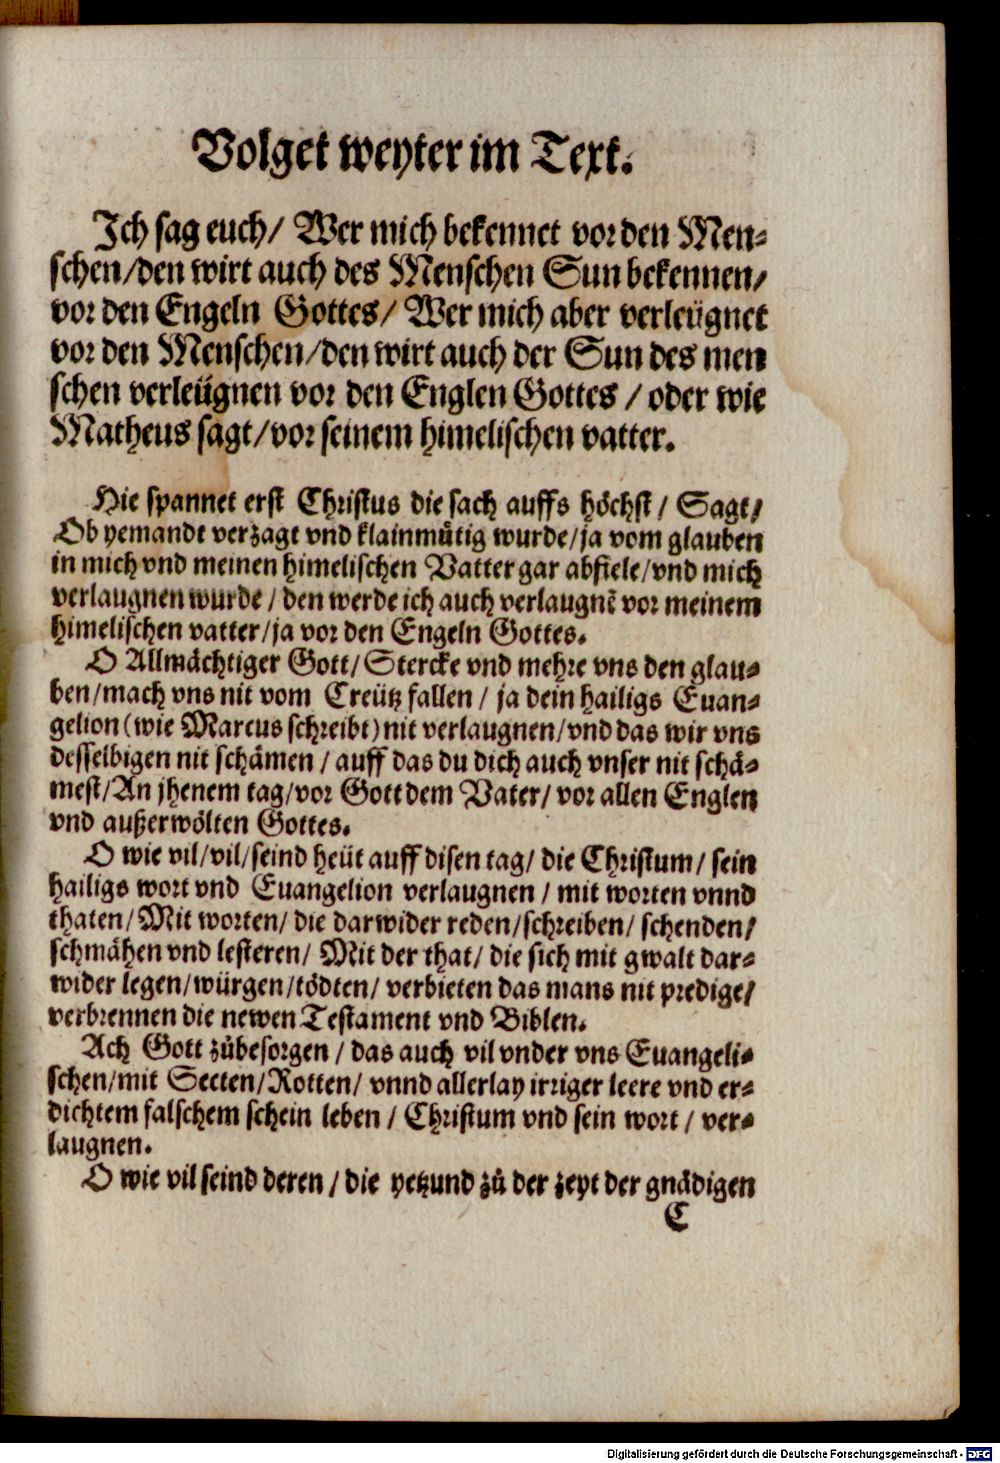 Volget weyter im Text.
Ich sag euch/ Wer mich bekennet vor den Men-
schen/den wirt auch des Menschen Sun bekennen/
vor den Engeln Gottes/ Wer mich aber verleügnet
vor den Menschen/den wirt auch der Sun des men
schen verleügnen vor den Englen Gottes / oder wie
Matheus sagt/vor seinem himelischen vatter.
Hie spannet erst Christus die sach auffs höchst/ Sagt/
Ob yemandt verzagt vnd klainmütig wurde/ja vom glauben
in mich vnd meinen himelischen Vatter gar abfiele/vnd mich
verlaugnen wurde / den werde ich auch verlaugnē vor meinem
himelischen vatter/ja vor den Engeln Gottes.
O Allmächtiger Gott/Stercke vnd mehre vns den glau-
ben/mach vns nit vom Creütz fallen / ja dein hailigs Euan-
gelion (wie Marcus schreibt) nit verlaugnen/vnd das wir vns
desselbigen nit schämen / auff das du dich auch vnser nit schä-
mest/An jhenem tag/vor Gott dem Vater/ vor allen Englen
vnd außerwölten Gottes.
O wie vil/vil/seind heüt auff disen tag/ die Christum/ sein
hailigs wort vnd Euangelion verlaugnen / mit worten vnnd
thaten/Mit worten/ die darwider reden/schreiben/ schenden/
schmähen vnd lesteren/ Mit der that/ die sich mit gwalt dar-
wider legen/würgen/tödten/ verbieten das mans nit predige/
verbrennen die newen Testament vnd Biblen.
Ach Gott zübesorgen / das auch vil vnder vns Euangeli-
schen/mit Secten/Rotten/ vnnd allerlay irriger leere vnd er-
dichtem falschem schein leben / Christum vnd sein wort / ver-
laugnen.
O wie vil seind deren / die yetzund zů der zeyt der gnädigen
C
Digitalisierung gefördert durch die Deutsche Forschungsgemeinschaft - DFG